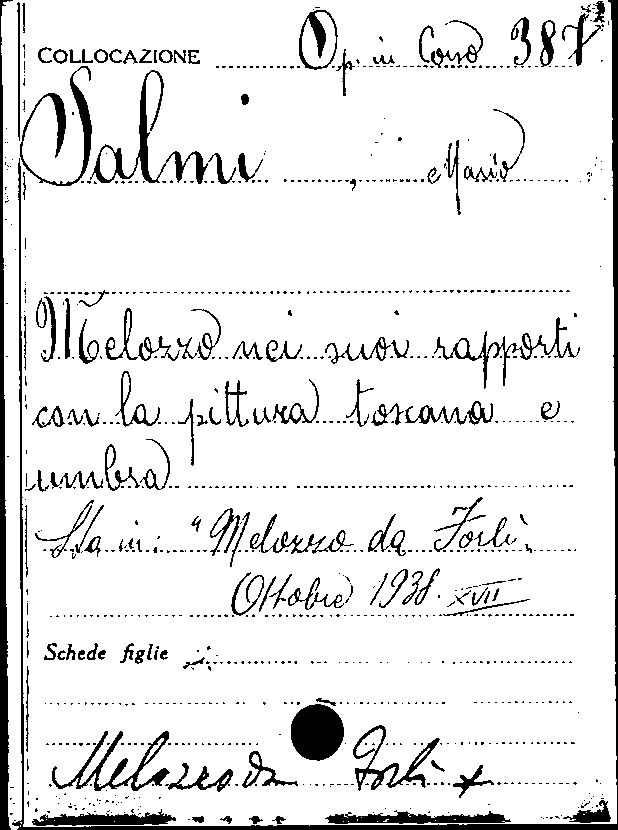 COLLOCAZIONE Op. in Corso 387
Salmi, Mario
Melozzo nei suoi rapporti
con la pittura toscana e
umbra
Sta in: "Melozzo da Forlì"
Ottobre 1938. XVII
Schede figlie
Melozzo da Forlì x